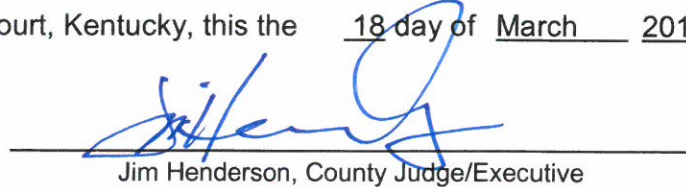 ourt, Kentucky, this the 18 day of March 201
Jim Henderson, County Judge/Executive